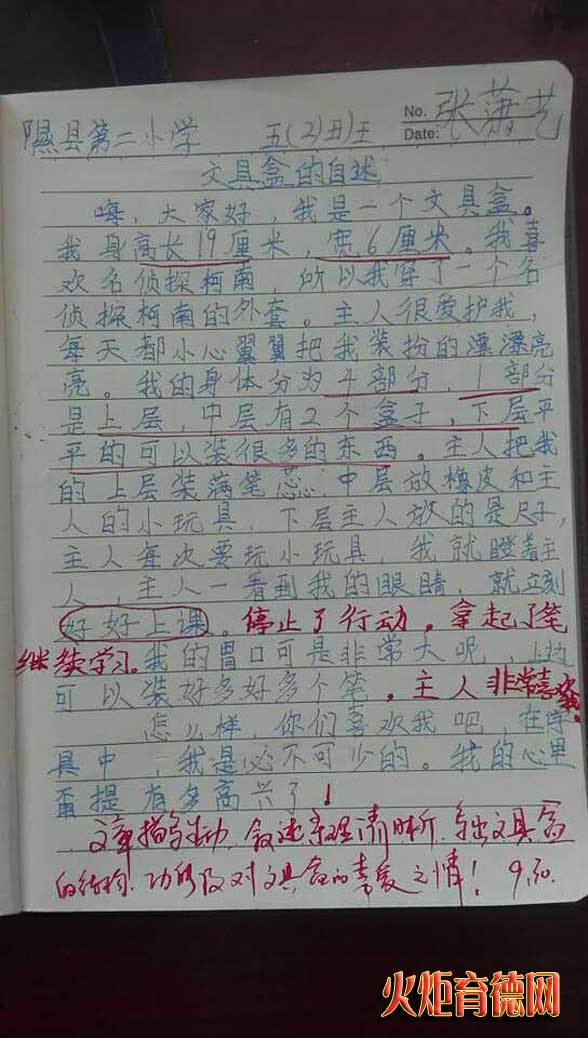 No. 张潇艺
Date:
隰县第二小学 五(2)班
文具盒的自述
嗨，大家好，我是一个文具盒。
我身高长19厘米，宽6厘米。我喜
欢名侦探柯南，所以我穿了一个名
侦探柯南的外套。主人很爱护我，
每天都小心翼翼把我装扮的漂漂亮
亮。我的身体分为4部分，1部分
是上层，中层有2个盒子，下层平
平的可以装很多的东西。主人把我
的上层装满笔芯，中层放橡皮和主
人的小玩具，下层主人放的是尺子，
主人每次要玩小玩具，我就瞪着主
人，主人一看到我的眼睛，就立刻
好好上课。停止了行动。拿起了笔
继续学习。我的胃口可是非常大呢，上边
可以装好多好多个笔。主人非常喜欢我。
怎么样，你们喜欢我吧，在学
具中，我是必不可少的。我的心里
甭提有多高兴了！
文章描写生动，叙述条理清晰，写出文具盒
的结构、功能及对文具盒的喜爱之情！ 9.30.
火炬育德网